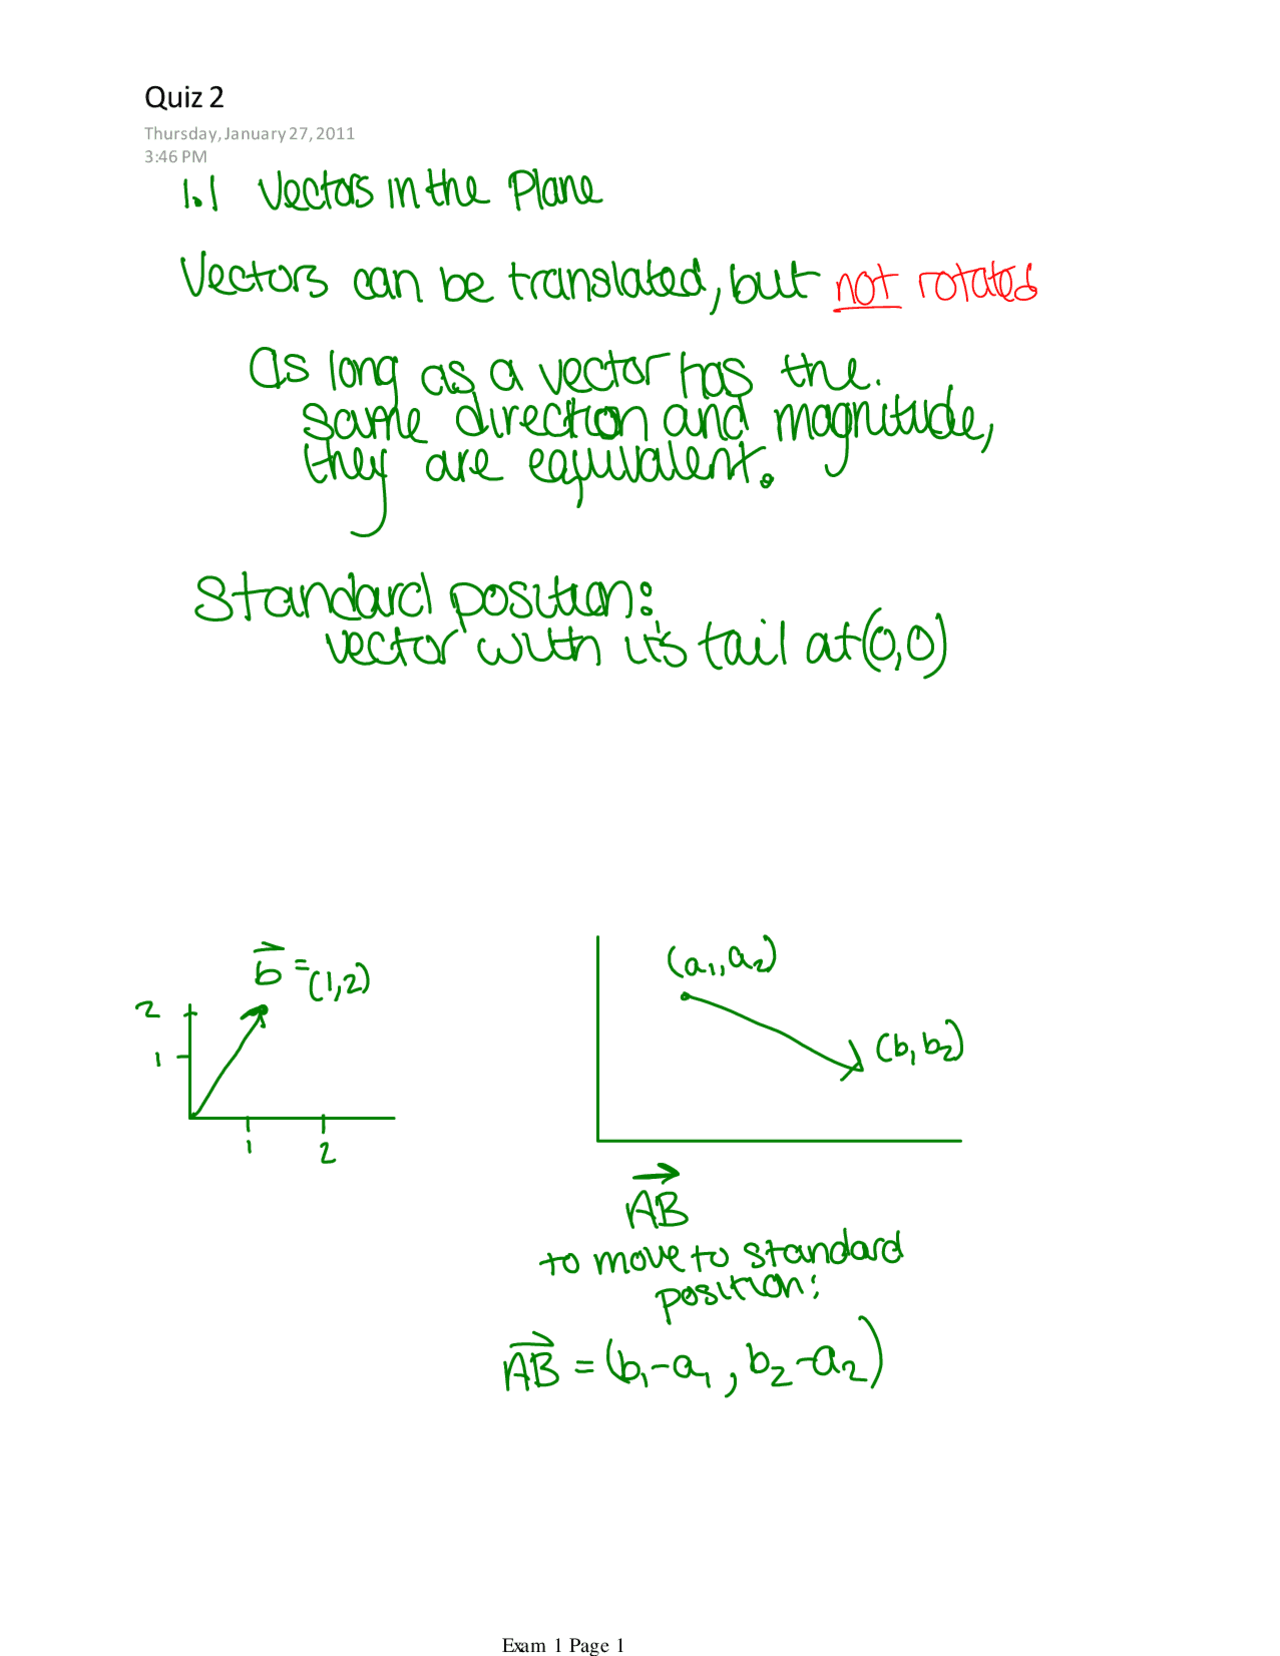 Quiz 2
Thursday, January 27, 2011
3:46 PM
1.1 Vectors in the Plane
Vectors can be translated, but not rotated
As long as a vector has the
same direction and magnitude,
they are equivalent.
Standard position:
vector with it's tail at (0,0)
b⃗ = (1,2)
2
1
1
2
(a₁, a₂)
(b₁ b₂)
A͞B⃗
to move to standard
position:
A͞B⃗ = (b₁-a₁, b₂-a₂)
Exam 1 Page 1